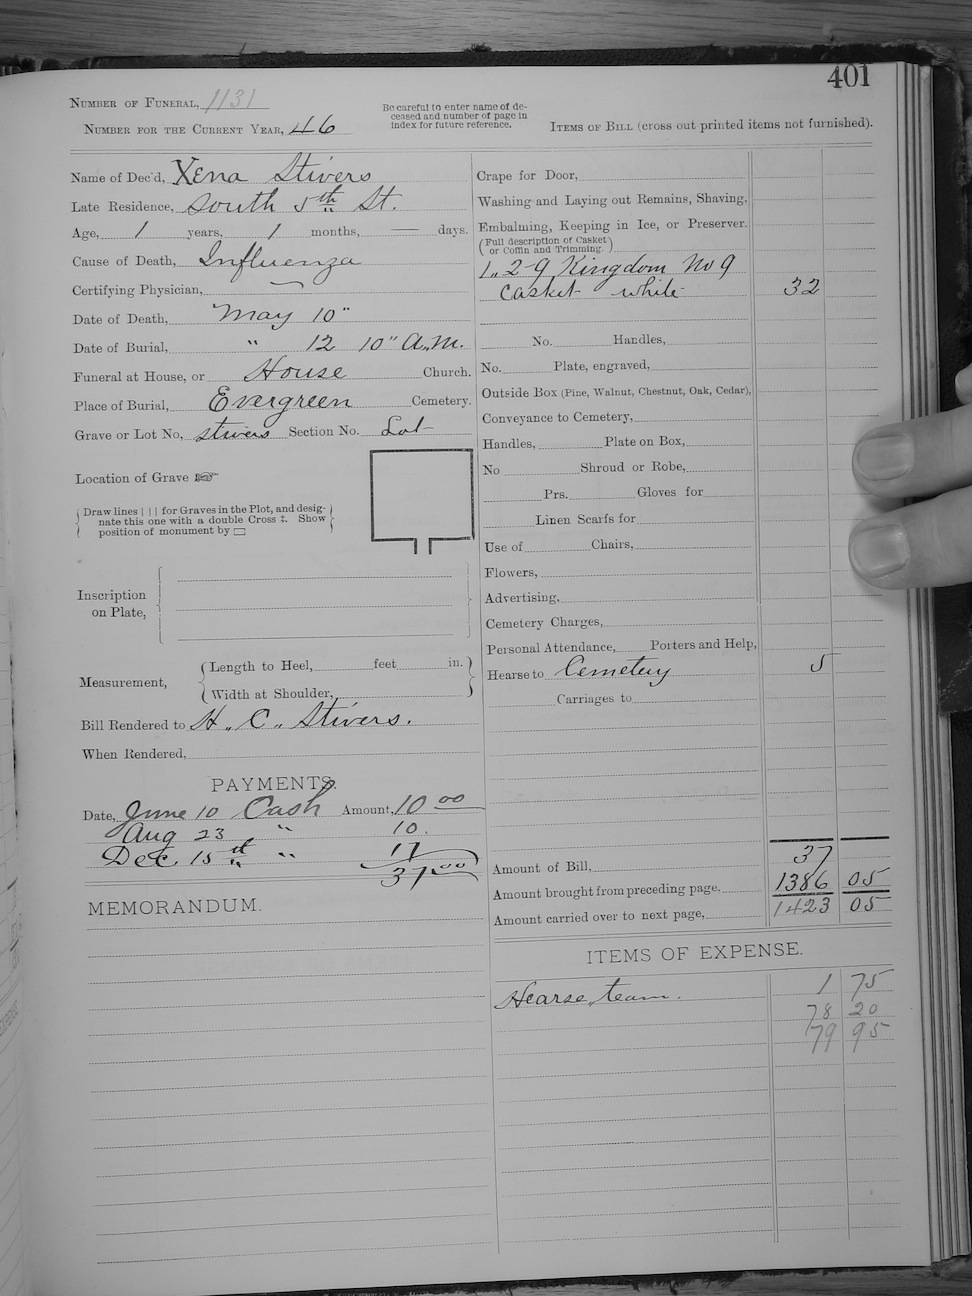 401
NUMBER OF FUNERAL, 1131
NUMBER FOR THE CURRENT YEAR, 46
Be careful to enter name of de-
ceased and number of page in
index for future reference.
ITEMS OF BILL (cross out printed items not furnished).
Name of Dec'd, Xena Stivers
Late Residence, South 5th St.
Age, 1 years, 1 months, — days.
Cause of Death, Influenza
Certifying Physician, —
Date of Death, May 10"
Date of Burial, " 12 10" A.M.
Funeral at House, or House Church.
Place of Burial, Evergreen Cemetery.
Grave or Lot No, Stivers Section No. Lot
Location of Grave ☞
Draw lines | | | for Graves in the Plot, and desig-
nate this one with a double Cross ‡. Show
position of monument by ▭
Inscription
on Plate,
Measurement,
Length to Heel, feet in.
Width at Shoulder,
Bill Rendered to H. C. Stivers.
When Rendered,
PAYMENTS.
Date, June 10 Cash Amount, 10 00
Aug 23 " 10.
Dec. 15th " 17
37.00
MEMORANDUM.
Crape for Door,
Washing and Laying out Remains, Shaving,
Embalming, Keeping in Ice, or Preserver.
(Full description of Casket
or Coffin and Trimming.)
1,, 2-9 Kingdom No 9
Casket white 32
No. Handles,
No. Plate, engraved,
Outside Box (Pine, Walnut, Chestnut, Oak, Cedar),
Conveyance to Cemetery,
Handles, Plate on Box,
No Shroud or Robe,
Prs. Gloves for
Linen Scarfs for
Use of Chairs,
Flowers,
Advertising,
Cemetery Charges,
Personal Attendance, Porters and Help,
Hearse to Cemetery 5
Carriages to
Amount of Bill, 37
Amount brought from preceding page, 1386 05
Amount carried over to next page, 1423 05
ITEMS OF EXPENSE.
Hearse team. 1 75
78 20
79 95